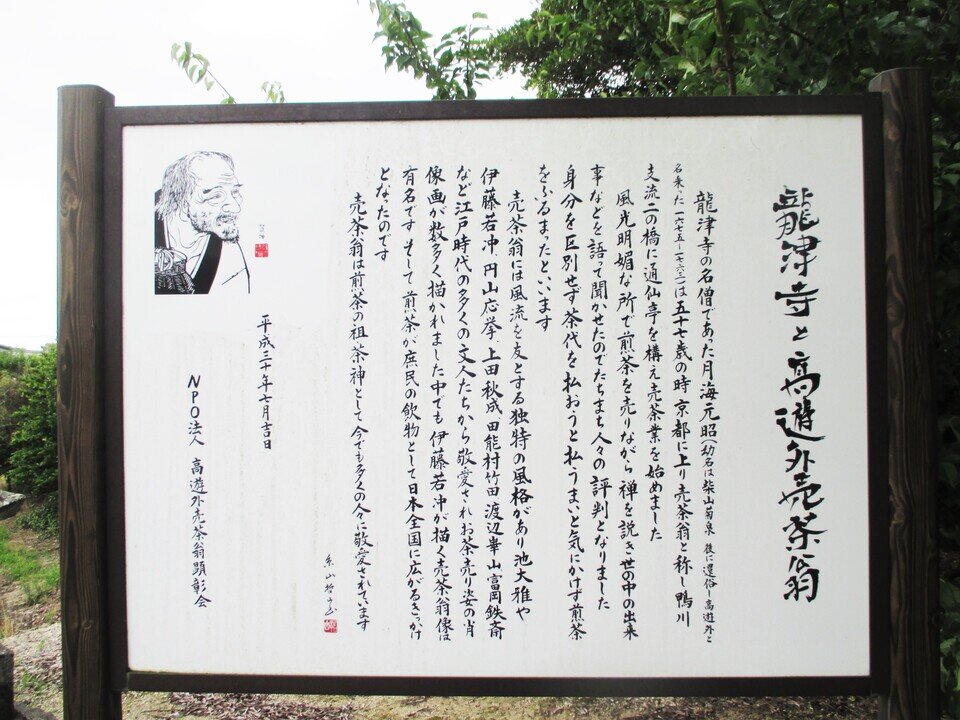 龍津寺と高遊外売茶翁
龍津寺の名僧であった月海元昭(幼名は柴山菊泉 後に還俗し高遊外と
名乗った 一六七五〜一七六三)は五十七歳の時 京都に上り売茶翁と称し鴨川
支流二の橋に通仙亭を構え売茶業を始めました
風光明媚な所で煎茶を売りながら禅を説き世の中の出来
事などを語って聞かせたのでたちまち人々の評判となりました
身分を区別せず茶代を払おうと払うまいと気にかけず煎茶
をふるまったといいます
売茶翁には風流を友とする独特の風格があり池大雅や
伊藤若冲 円山応挙 上田秋成 田能村竹田 渡辺崋山 富岡鉄斎
など江戸時代の多くの文人たちから敬愛されお茶売り姿の肖
像画が数多く描かれました中でも伊藤若冲が描く売茶翁像は
有名です そして煎茶が庶民の飲物として日本全国に広がるきっかけ
となったのです
売茶翁は煎茶の祖 茶神として今でも多くの人々に敬愛されています
平成三十年七月吉日
NPO法人 高遊外売茶翁顕彰会